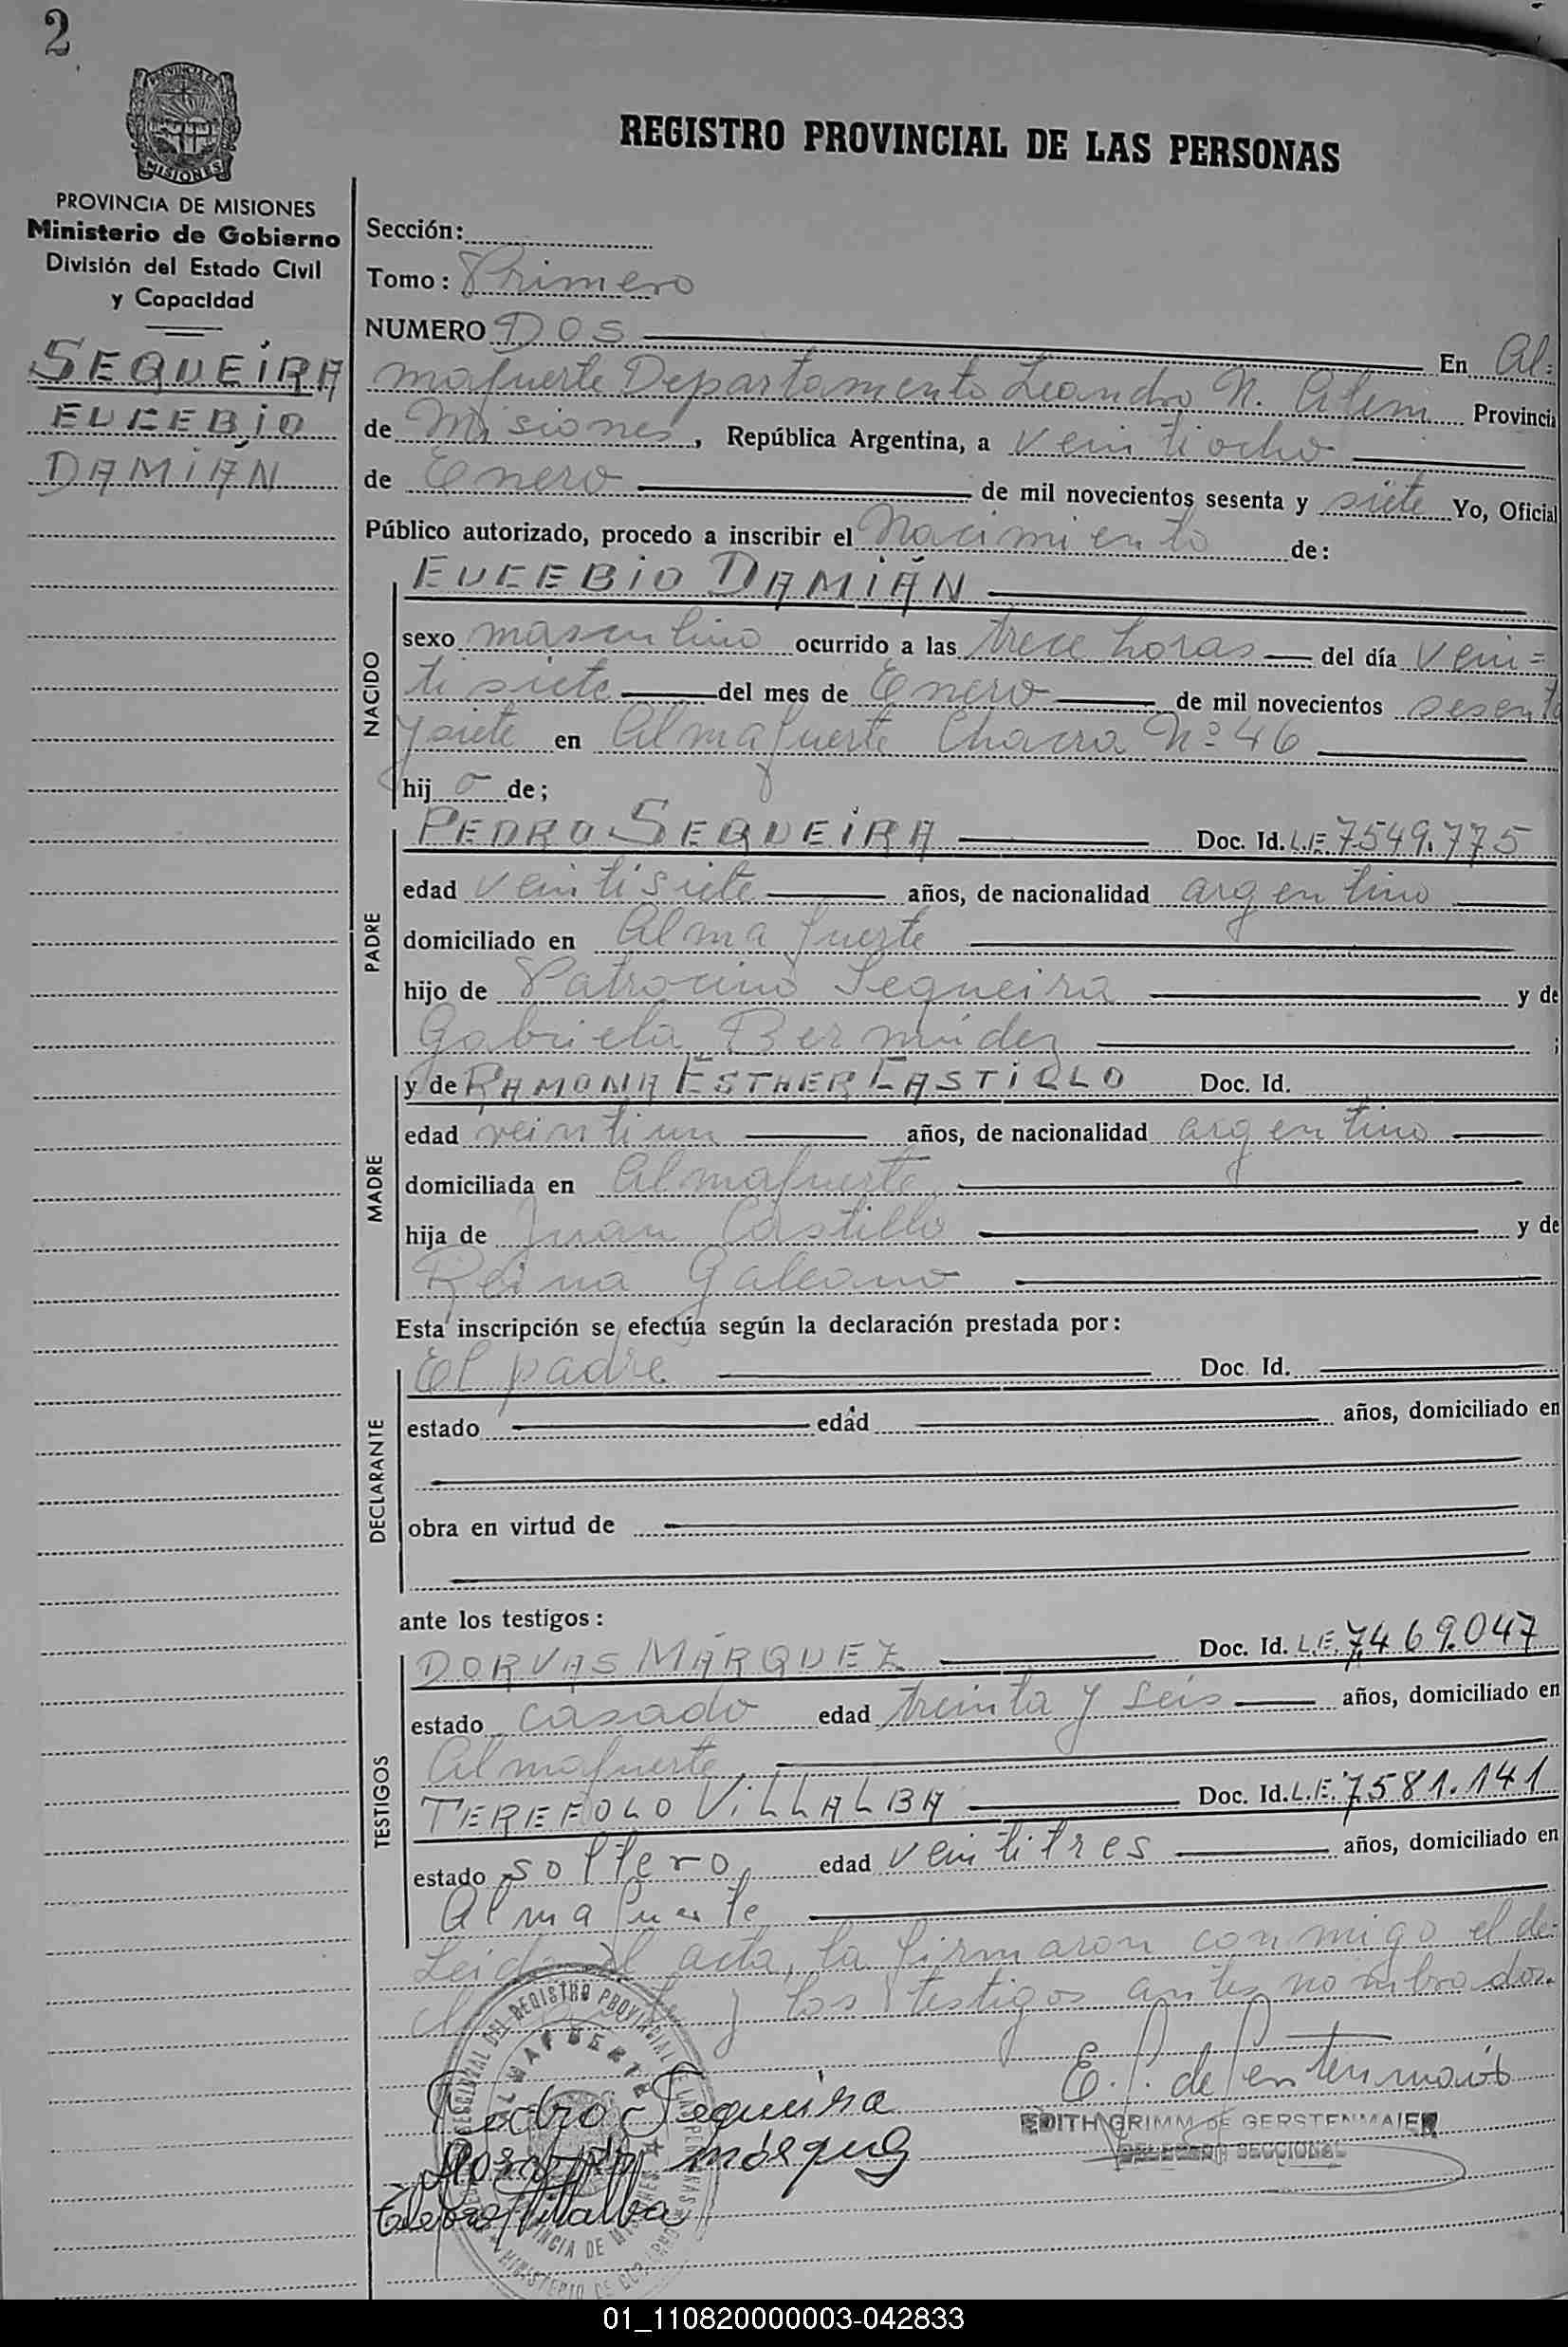 2
MISIONES
PROVINCIA DE MISIONES
Ministerio de Gobierno
División del Estado Civil
y Capacidad
SEQUEIRA
EUCEBIO
DAMIÁN
REGISTRO PROVINCIAL DE LAS PERSONAS
Sección:
Tomo: Primero
NUMERO DOS En Al=
mafuerte Departamento Leandro N. Alem Provincia
de Misiones, República Argentina, a veintiocho
de Enero de mil novecientos sesenta y siete Yo, Oficial
Público autorizado, procedo a inscribir el Nacimiento de:
NACIDO
EUCEBIO DAMIÁN
sexo masculino ocurrido a las trece horas del día vein=
tisiete del mes de Enero de mil novecientos sesenta
y siete en Almafuerte Chacra Nº 46
hijo de;
PADRE
PEDRO SEQUEIRA Doc. Id. L.E. 7549.775
edad veintisiete años, de nacionalidad argentino
domiciliado en Almafuerte
hijo de Patrocinio Sequeira y de
Gabriela Bermúdez ;
MADRE
y de RAMONA ESTHER CASTILLO Doc. Id.
edad veintiun años, de nacionalidad argentino
domiciliada en Almafuerte
hija de Juan Castillo y de
Reina Galeano
Esta inscripción se efectúa según la declaración prestada por:
DECLARANTE
El padre Doc. Id.
estado edad años, domiciliado en
obra en virtud de
ante los testigos:
TESTIGOS
DORVAS MÁRQUEZ Doc. Id. L.E. 7.469.047
estado casado edad treinta y seis años, domiciliado en
Almafuerte
TEREFOLO VILLALBA Doc. Id. L.E. 7.581.141
estado soltero edad veintitres años, domiciliado en
Almafuerte
Leida el acta, la firmaron conmigo el de=
y los testigos antes nombrados.
Pedro Sequeira
EDITH GRIMM DE GERSTENMAIER
DELEGADO SECCIONAL
Villalba
01_110820000003-042833